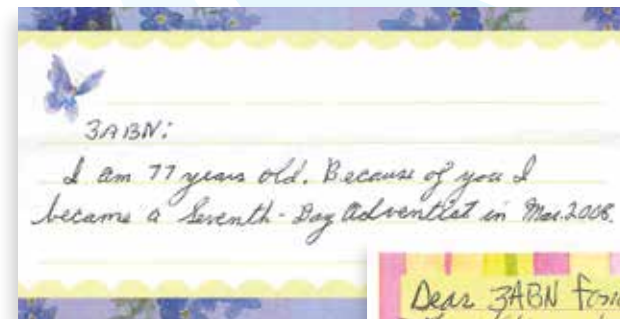 3ABN:
I am 77 years old. Because of you I
became a Seventh-Day Adventist in Mar. 2008.
Dear 3ABN